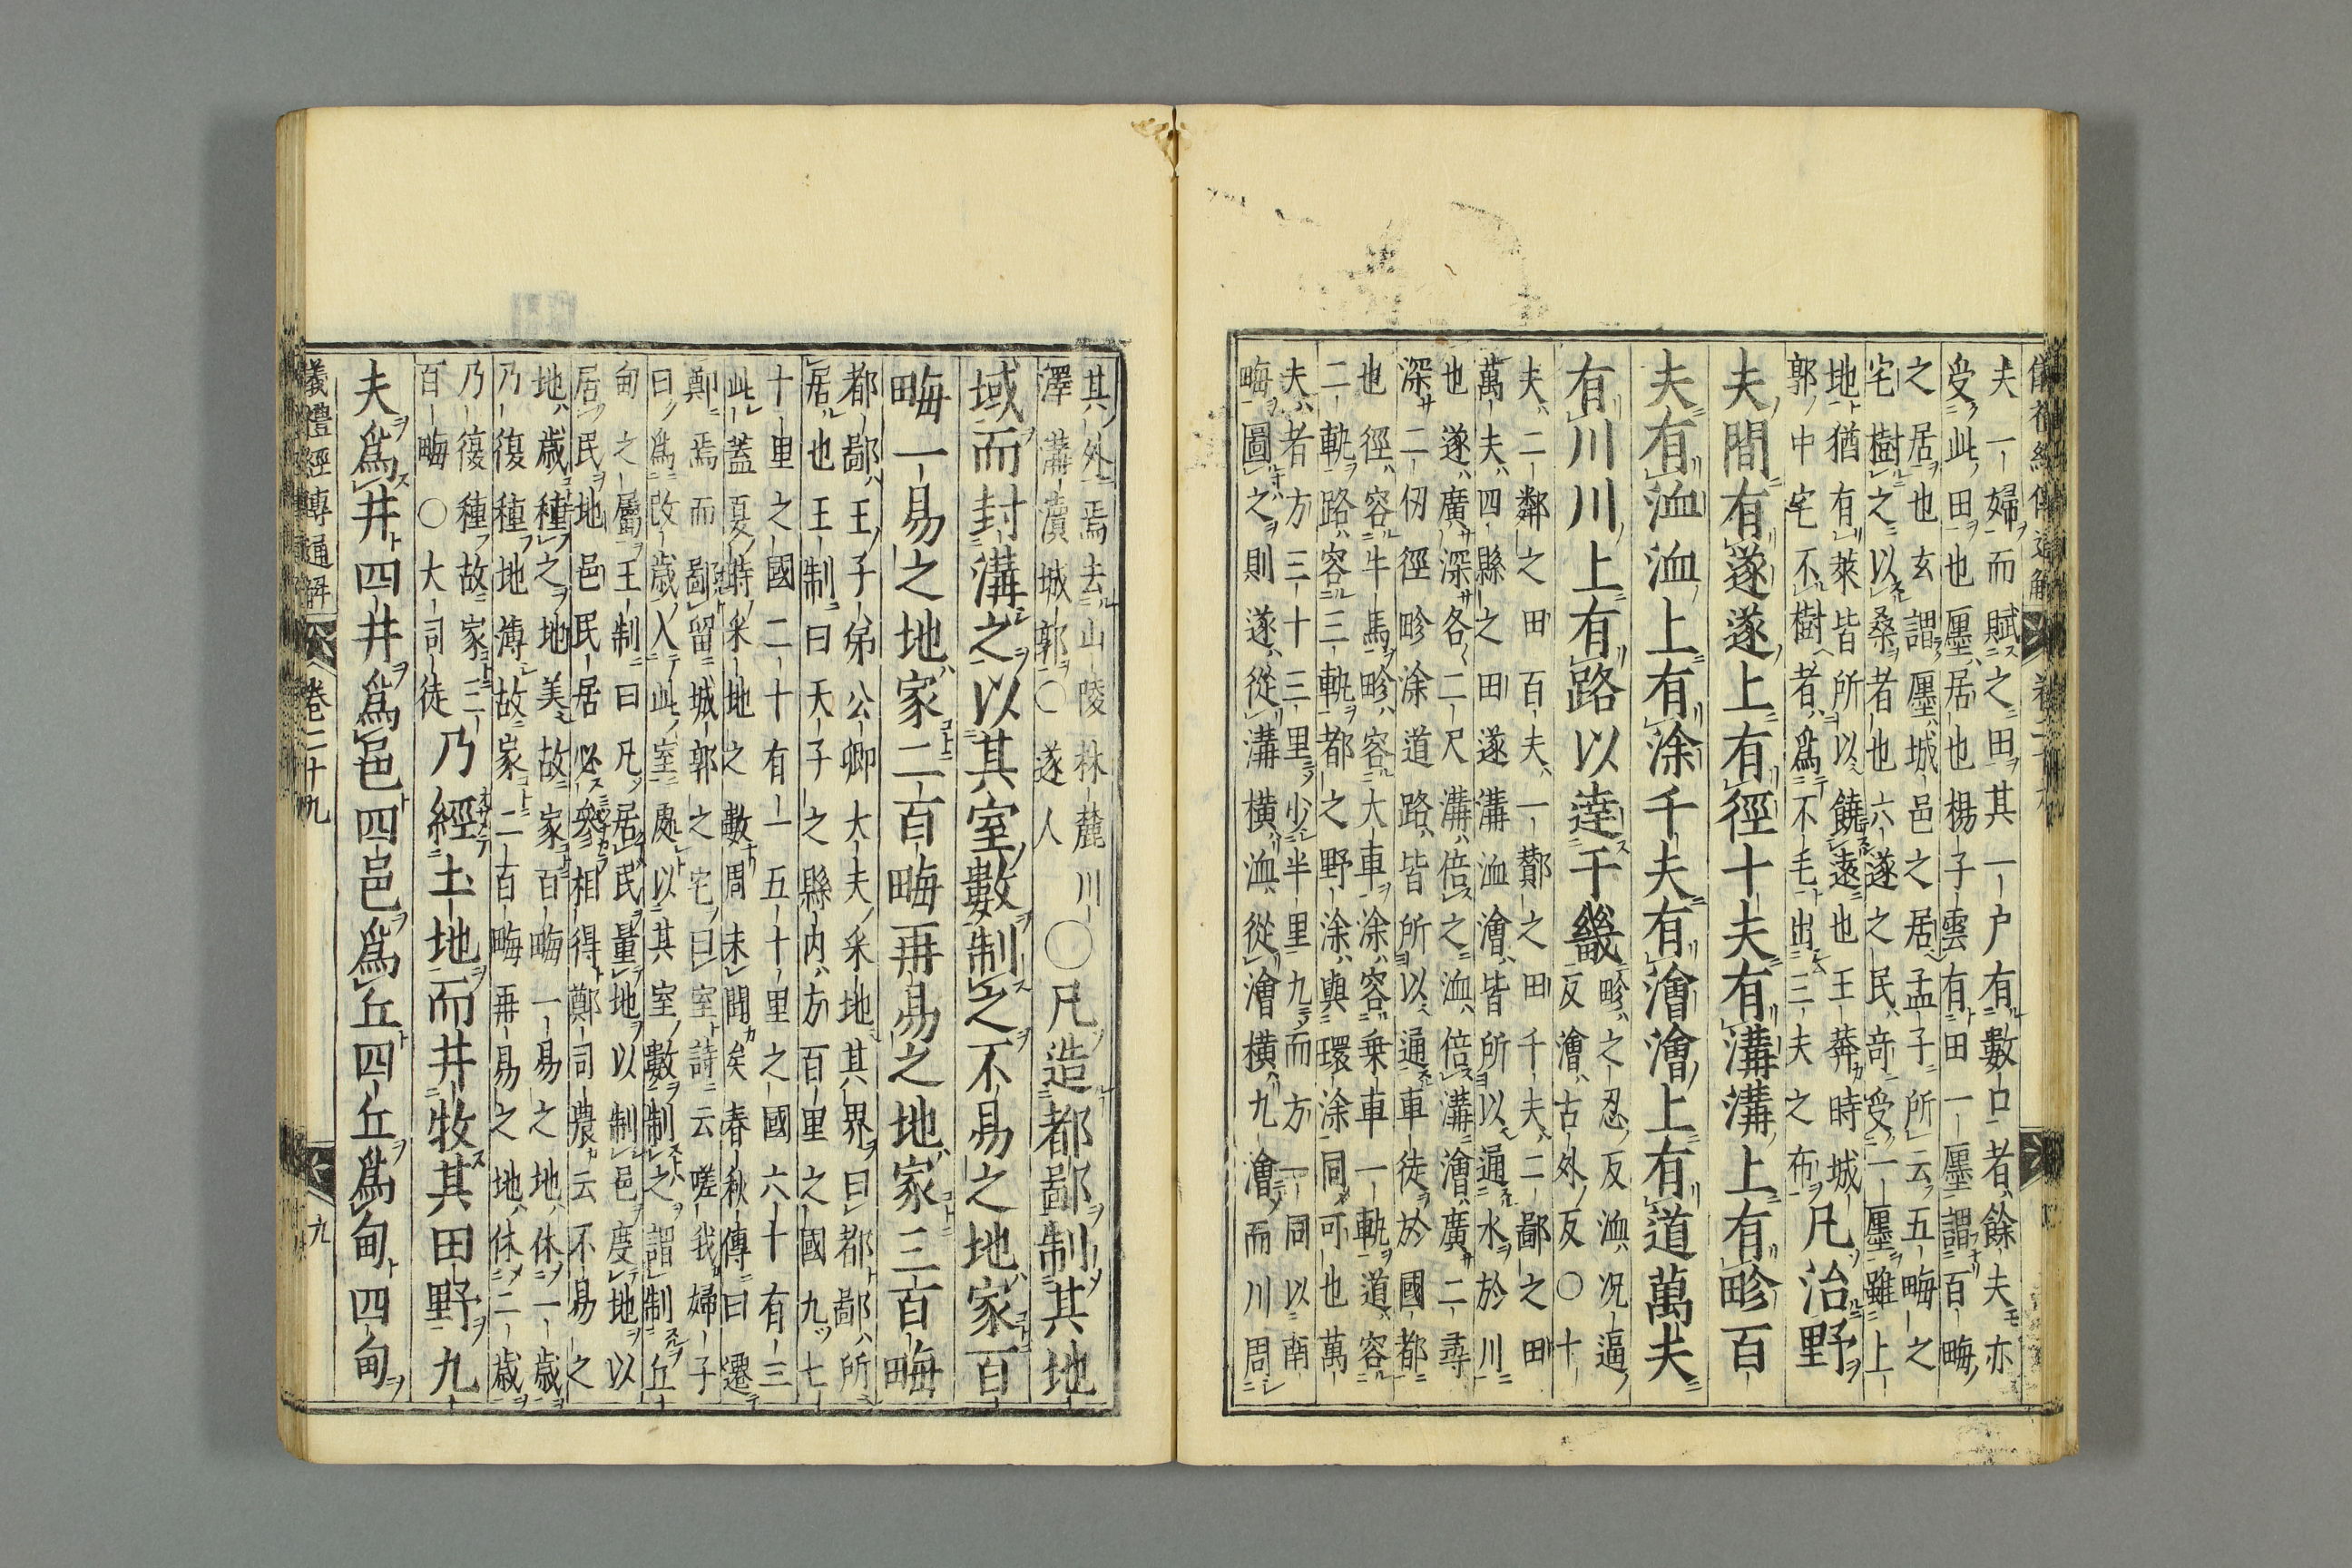 儀禮經傳通解
夫一婦而賦之田其一户有數口者餘夫亦
受此田也廛居也楊子雲有田一廛謂百畮
之居也玄謂廛城邑之居孟子所云五畮之
宅樹之以桑者也六遂之民竒受一廛雖上
地猶有萊皆所以饒遠也王莽時城
郭中宅不樹者爲不毛出三夫之布
凡治野
夫間有遂遂上有徑十夫有溝溝上有畛百
夫有洫洫上有涂千夫有澮澮上有道萬夫
有川川上有路以達于畿
畛之忍反洫况逼
反澮古外反〇十
夫二鄰之田百夫一酇之田千夫二鄙之田
萬夫四縣之田遂溝洫澮皆所以通水於川
也遂廣深各二尺溝倍之洫倍溝澮廣二尋
深二仞徑畛涂道路皆所以通車徒於國都
也徑容牛馬畛容大車涂容乗車一軌道容
二軌路容三軌都之野涂與環涂同可也萬
夫者方三十三里少半里九而方一同以南
畮圖之則遂從溝横洫從澮横九澮而川周
其外焉去山陵林麓川
澤溝瀆城郭〇遂人
〇凡造都鄙制其地
域而封溝之以其室數制之不易之地家百
畮一易之地家二百畮再易之地家三百畮
都鄙王子弟公卿大夫采地其界曰都鄙所
居也王制曰天子之縣内方百里之國九七
十里之國二十有一五十里之國六十有三
此蓋夏時采地之數周未聞矣春秋傳曰遷
鄭焉而鄙留城郭之宅曰室詩云嗟我婦子
曰爲改歳入此室處以其室數制之謂制丘
甸之屬王制曰凡居民量地以制邑度地以
居民地邑民居必參相得鄭司農云不易之
地歳種之地美故家百畮一易之地休一歳
乃復種地薄故家二百畮再易之地休二歳
乃復種故家三
百畮〇大司徒
乃經土地而井牧其田野九
夫爲井四井爲邑四邑爲丘四丘爲甸四甸
儀禮經傳通解 卷二十九 九